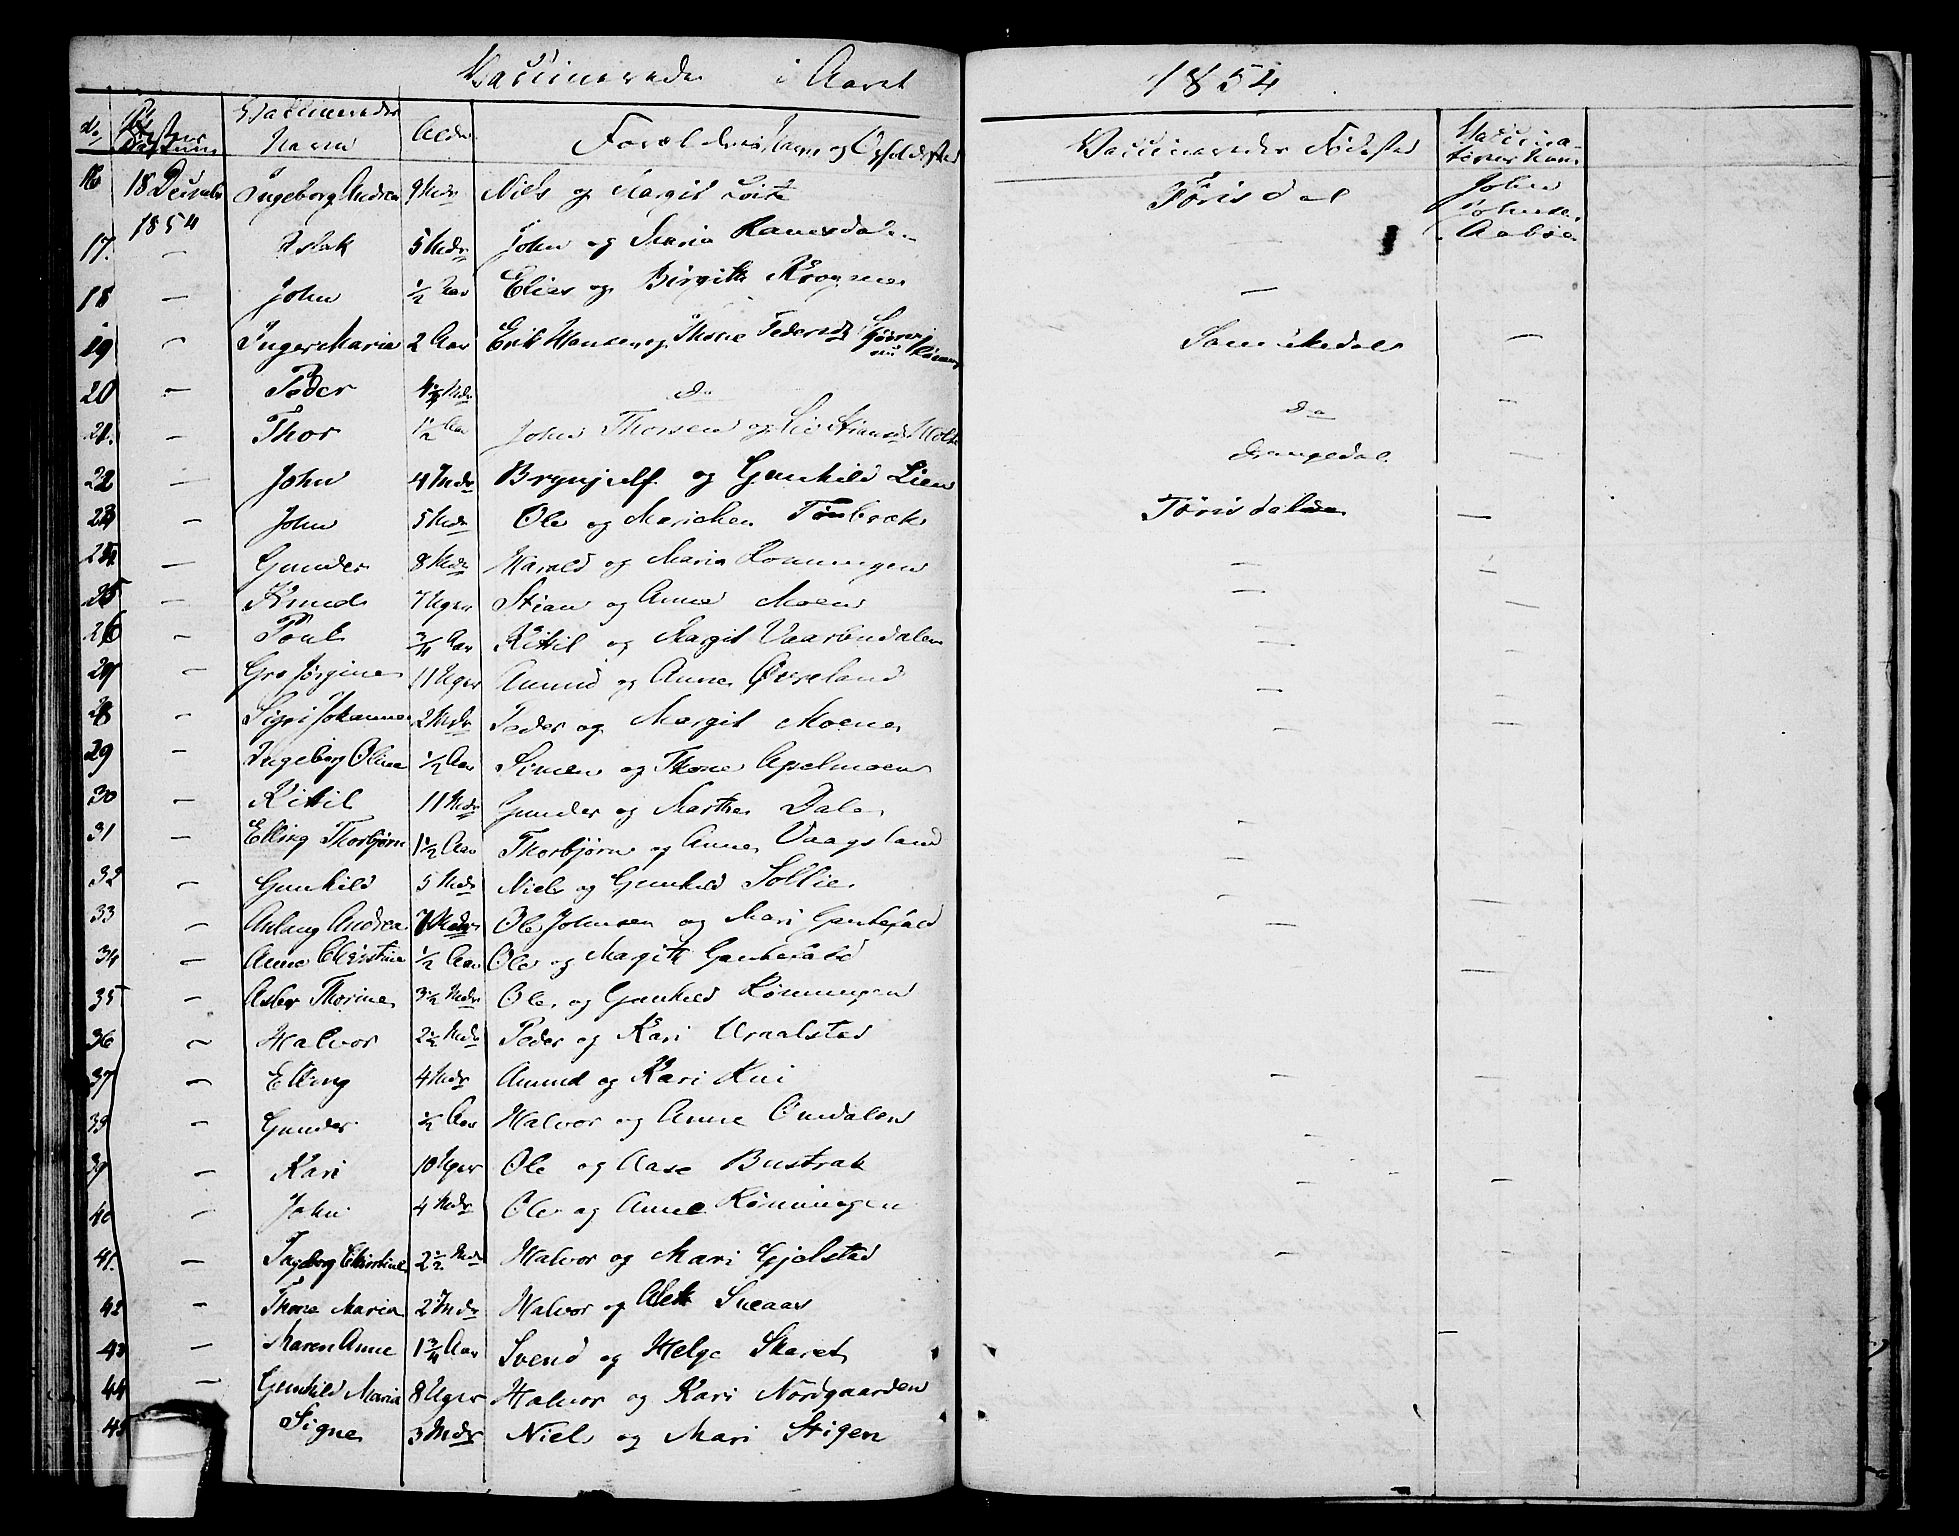 Vaccinerede i Aaret 1854
No Attestens Datum Vaccineredes Navn Alder Forældrenes Navn og Opholdssted Vaccineredes Fødested Vaccinateurens Navn
16 18 December 1854 Ingeborg Andrea 9 Mdr Niels og Margit Tørisdal John Johnsen Aabøe
17. — Islak 5 Mdr John og Maria — —
18 — John ½ Aar Elias og Birgith Krogmoe — —
19 — Inger Maria 2 Aar Erik Hansen og Thone Pedersd Sannikedal —
20 — Peder 4½ Mdr do do —
21. — Thor 1½ Aar John Thorsen og Liv Drangedal —
22 — John 4 Mdr Brynjulf og Gunhild Lien
23 — John 5 Mdr Ole og Marichen Tørisdal —
24 — Gunder 8 Mdr Harald og Maria Rønningen —
25 — Knud 7 Uger Stian og Anne Moen — —
26 — Poul ¾ Aar Kittil og Margit Vaarlidalen — —
27 — Gro Jørgine 11 Uger Amund og Anne Øvreland — —
28 — Sigri Johanne 2 Mdr Peder og Margit Moene — —
29 — Ingeborg Oline ½ Aar Simen og Thone Apelmoen —
30 — Kittil 11 Mdr Gunder og Marthe Dale —
31 — Elling Thorbjørn 1½ Aar Thorbjørn og Anne Vaagsland —
32 — Gunhild 5 Mdr Niels og Gunhild Sollie — —
33 — Aslaug Andrea 7 Mdr Ole Johnsen og Mari —
34 — Anne Christine ½ Aar Ole og Margith —
35 — Thorine 3½ Mdr Ole og Gunhild Rønningen —
36 — Halvor 2½ Mdr Peder og Kari Uraalstad
37 — Elling 4 Mdr Amund og Kari — —
38 — Gunder ½ Aar Halvor og Anne Omdalen —
39 — Kari 10 Uger Ole og Aase Bustrak —
40 — John 4 Mdr Ole og Anne Rønningen — —
41. — Ingeborg Christine 2½ Mdr Halvor og Mari Gjelstad —
42 — Thone Maria 2 Mdr Halvor og Sneaas
43 — Maren Anne 1¾ Aar Svend og Helge Skaret —
44 — Gunhild Maria 8 Uger Halvor og Kari Nordgaarden
45 Signe 3 Mdr Niels og Mari Stigen